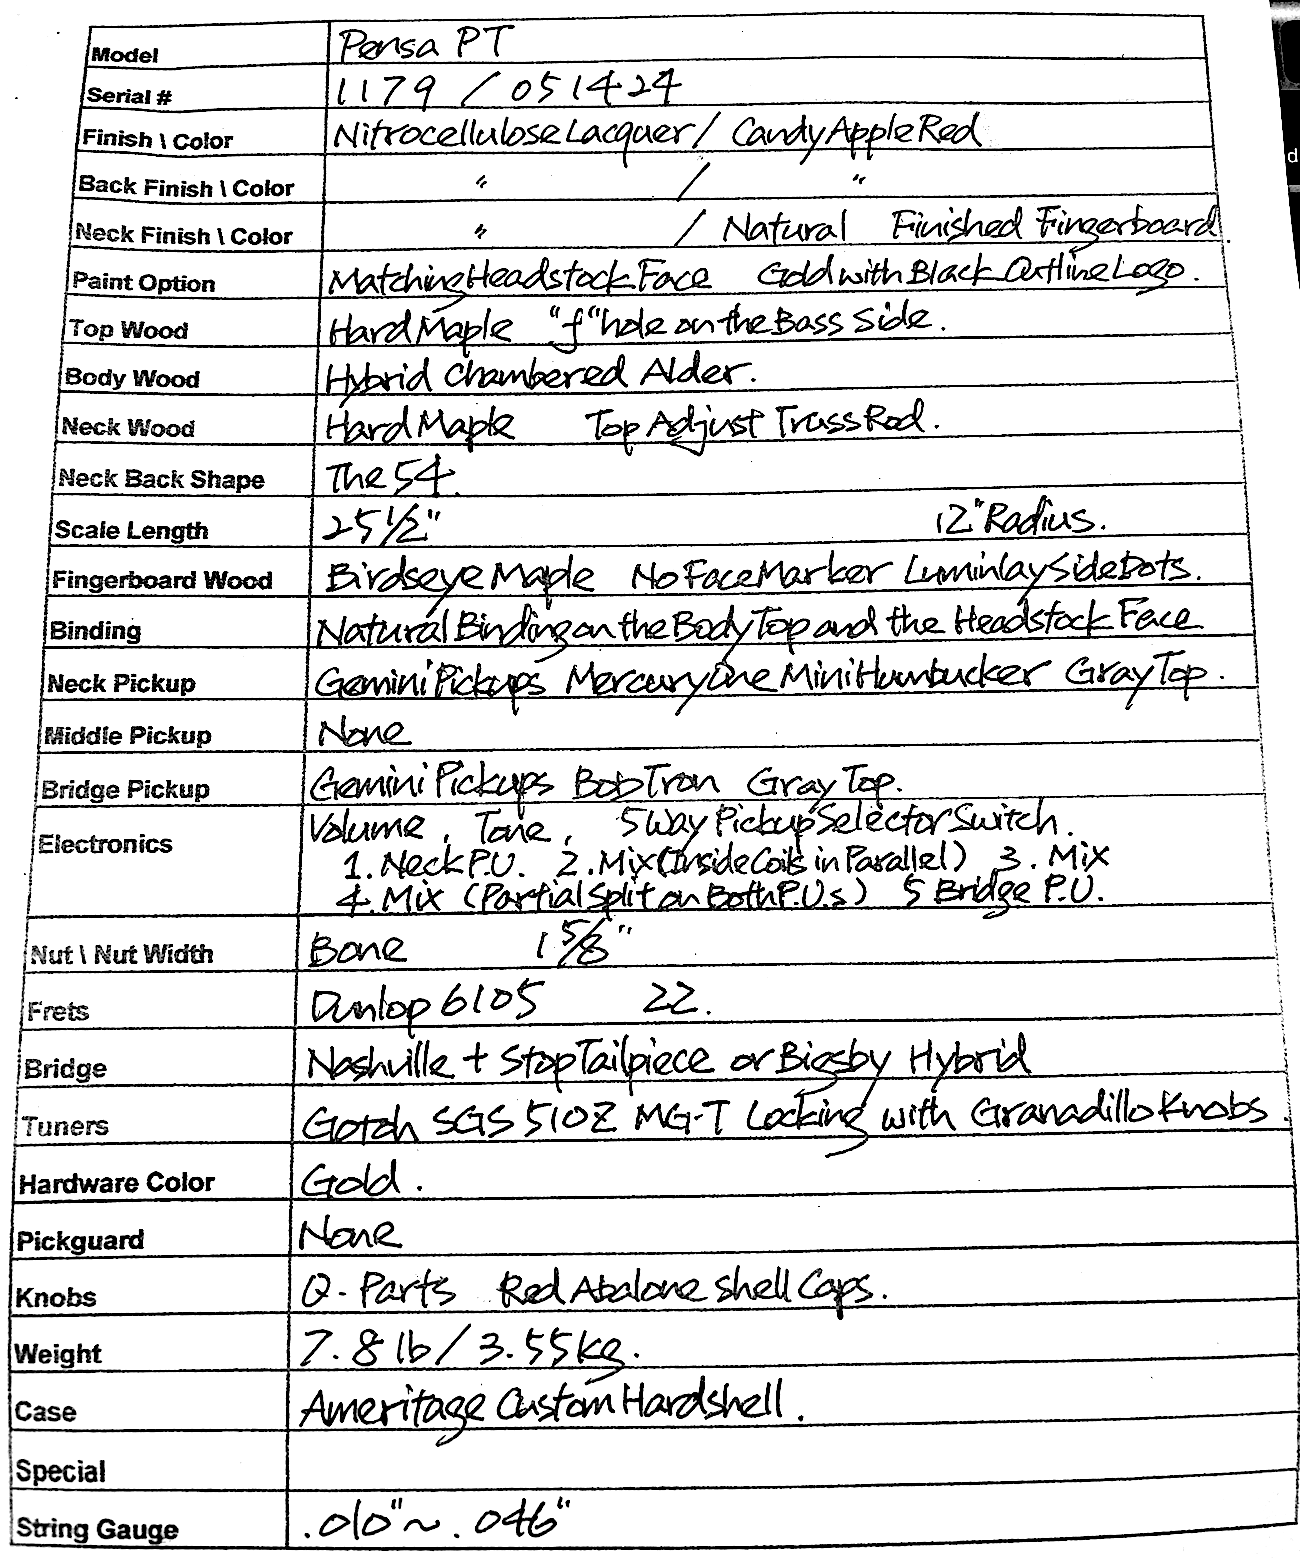 Model Pensa PT
Serial # 1179 / 051424
Finish \ Color Nitrocellulose Lacquer / Candy Apple Red
Back Finish \ Color " / "
Neck Finish \ Color " / Natural Finished Fingerboard.
Paint Option Matching Headstock Face Gold with Black Outline Logo.
Top Wood Hard Maple "f" hole on the Bass Side.
Body Wood Hybrid Chambered Alder.
Neck Wood Hard Maple Top Adjust Truss Rod.
Neck Back Shape The 54.
Scale Length 25 1/2" 12" Radius.
Fingerboard Wood Birdseye Maple No Face Marker Luminlay Side Dots.
Binding Natural Binding on the Body Top and the Headstock Face
Neck Pickup Gemini Pickups Mercury One Mini Humbucker Gray Top.
Middle Pickup None
Bridge Pickup Gemini Pickups BobTron Gray Top.
Electronics Volume, Tone, 5 Way Pickup Selector Switch.
1. Neck P.U. 2. Mix (Inside Coils in Parallel) 3. Mix
4. Mix (Partial Split on Both P.U.s) 5 Bridge P.U.
Nut \ Nut Width Bone 1 5/8"
Frets Dunlop 6105 22.
Bridge Nashville + Stop Tailpiece or Bigsby Hybrid
Tuners Gotoh SGS 510Z MG-T Locking with Granadillo Knobs.
Hardware Color Gold.
Pickguard None
Knobs Q-Parts Red Abalone Shell Caps.
Weight 7.8 lb / 3.55 kg.
Case Ameritage Custom Hardshell.
Special
String Gauge .010" ~ .046"